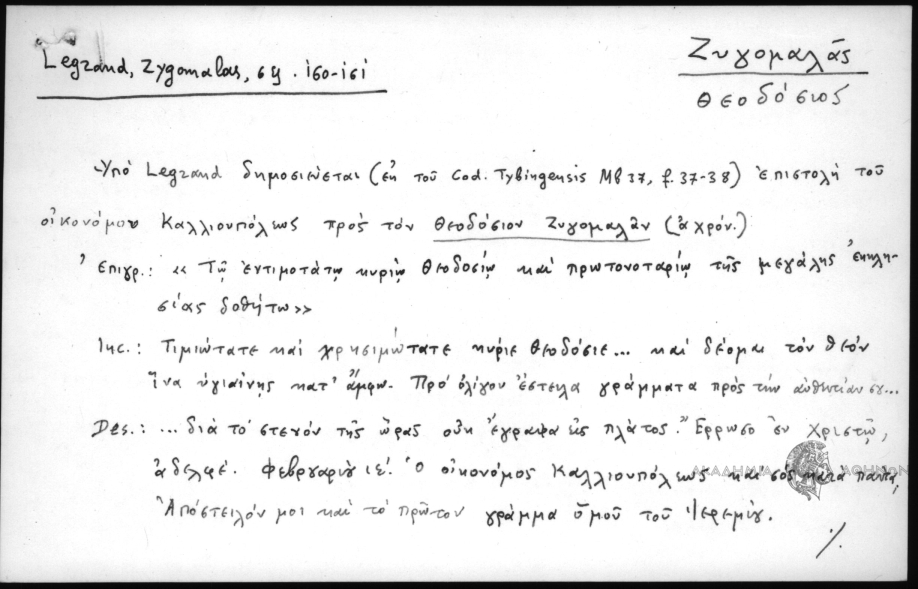 Legrand, Zygomalas, σς. 160-161
Ζυγομαλᾶς
Θεοδόσιος
Ὑπό Legrand δημοσιεύεται (ἐκ τοῦ Cod. Tybingensis Mb 37, f. 37-38) ἐπιστολή τοῦ
οἰκονόμου Καλλιουπόλεως πρός τόν Θεοδόσιον Ζυγομαλᾶν (ἀχρόν.)
Ἐπιγρ.: «Τῷ ἐντιμοτάτῳ κυρίῳ Θεοδοσίῳ καί πρωτονοταρίῳ τῆς μεγάλης ἐκκλη-
σίας δοθήτω»
Inc.: Τιμιώτατε καί χρησιμώτατε κύριε Θεοδόσιε... καί δέομαι τόν θεόν
ἵνα ὑγιαίνῃς κατ' ἄμφω. Πρό ὀλίγου ἔστειλα γράμματα πρός τήν αὐθεντίαν σου...
Des.: ... διά τό στενόν τῆς ὥρας οὐκ ἔγραψα εἰς πλάτος. Ἔρρωσο ἐν Χριστῷ,
ἀδελφέ. Φεβρουαρίου ιέ. Ὁ οἰκονόμος Καλλιουπόλεως καί σός κατά πάντα,
Ἀπόστειλόν μοι καί τό πρῶτον γράμμα ὁμοῦ τοῦ Ἱερεμίου.
ΑΚΑΔΗΜΙΑ ΑΘΗΝΩΝ
./.